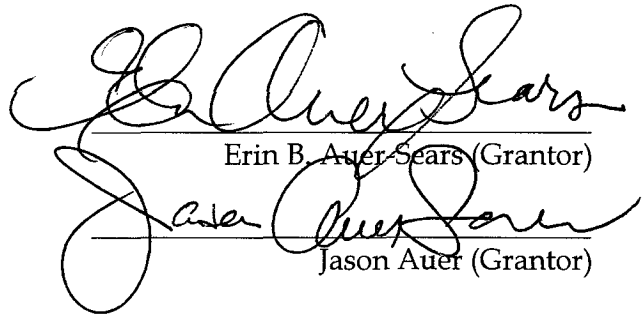 Erin Auer Sears
Erin B. Auer-Sears (Grantor)
Jason Auer
Jason Auer (Grantor)